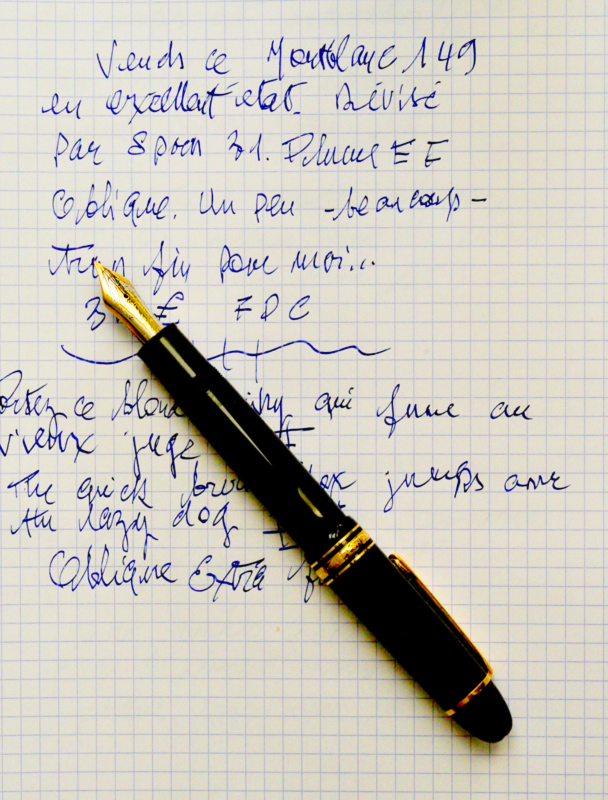 Vends ce Montblanc 149
en excellent état. Révisé
par 31. Plume E F
Oblique. Un peu - beaucoup -
trop fin pour moi...
€ FDC
Portez ce qui fume au
vieux juge
The quick jumps over
the lazy dog
Oblique Extra